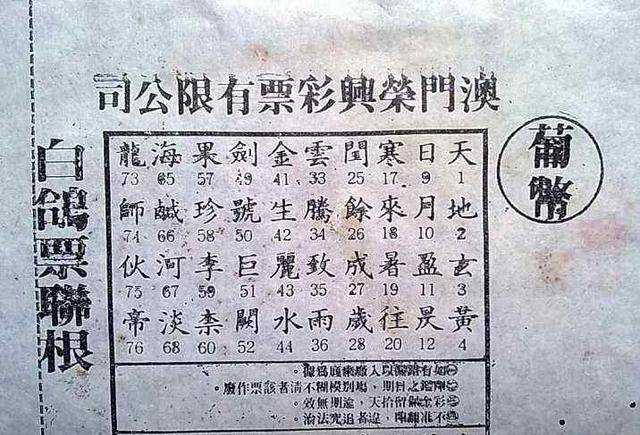 澳門榮興彩票有限公司
葡幣
天日寒閏雲金劍果海龍
1 9 17 25 33 41 49 57 65 73
地月來餘騰生號珍鹹師
2 10 18 26 34 42 50 58 66 74
玄盈暑成致麗巨李河伙
3 11 19 27 35 43 51 59 67 75
黃昃往歲雨水闕柰淡帝
4 12 20 28 36 44 52 60 68 76
如有錯漏以入廠票底爲據。
之日期,場別模糊不清者該票作廢。
彩金保留拾天,逾期無效。
不准翻印,違者追究法治。
白鴿票聯根